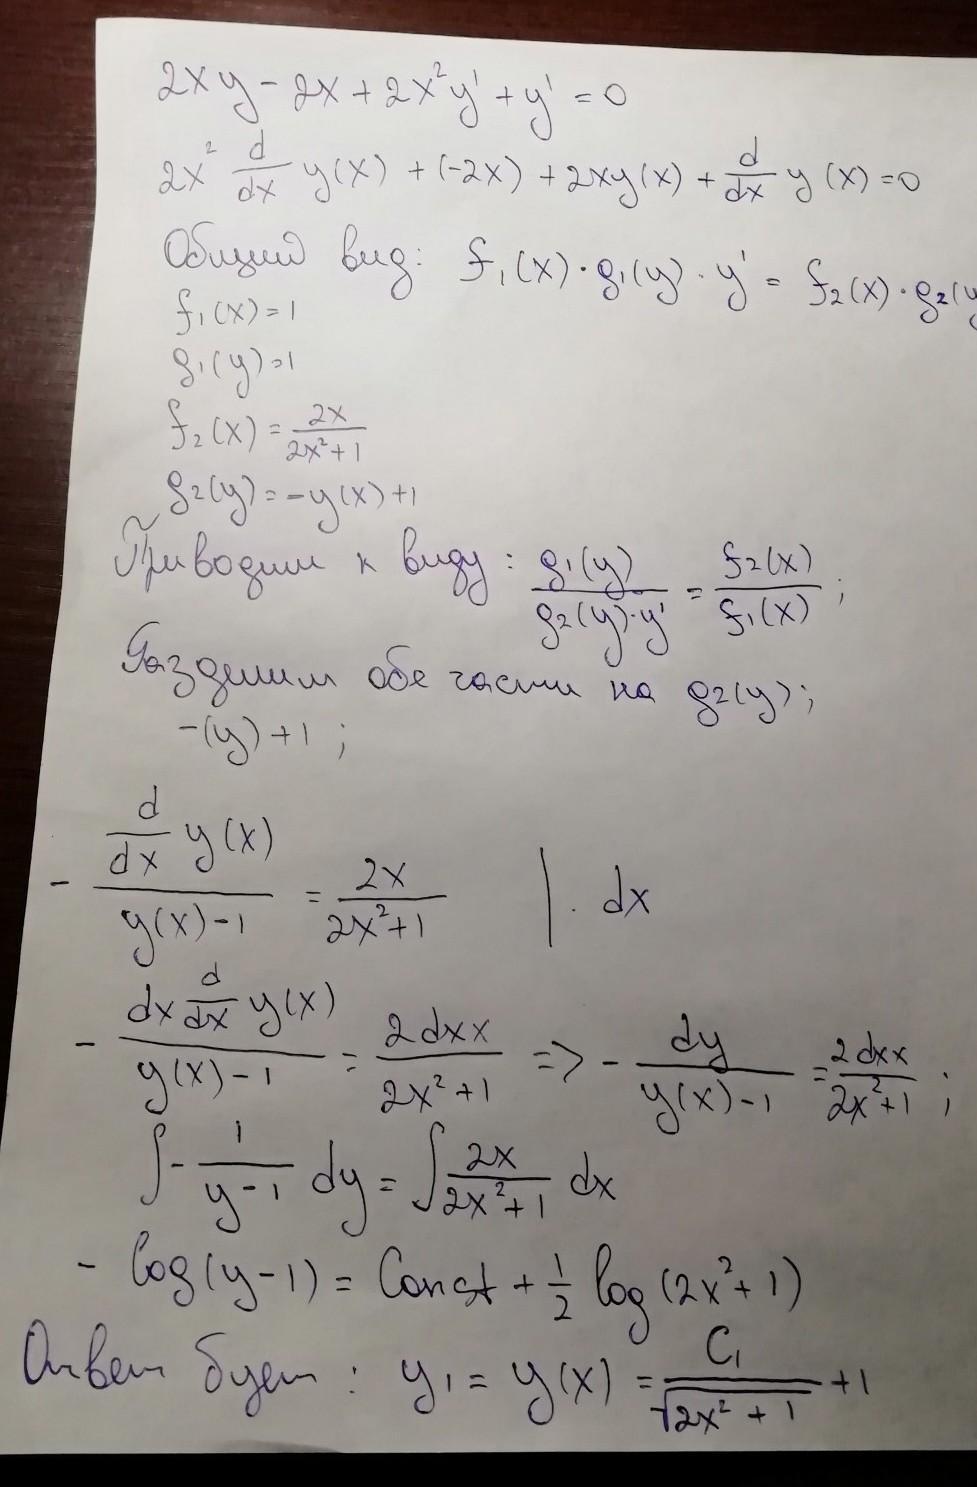 2xy - 2x + 2x² y' + y' = 0
2x² d/dx y(x) + (-2x) + 2xy(x) + d/dx y(x) = 0
Общий вид: f₁(x) · g₁(y) · y' = f₂(x) · g₂(y
f₁(x) = 1
g₁(y) = 1
f₂(x) = 2x/(2x²+1)
g₂(y) = -y(x) + 1
Приводим к виду: g₁(y)/(g₂(y)·y') = f₂(x)/f₁(x) ;
Разделим обе части на g₂(y);
-(y) + 1 ;
- (d/dx y(x))/(y(x) - 1) = 2x/(2x²+1) | · dx
- (dx d/dx y(x))/(y(x) - 1) = 2dxx/(2x²+1) => - dy/(y(x) - 1) = 2dxx/(2x²+1) ;
∫ - 1/(y-1) dy = ∫ 2x/(2x²+1) dx
- log(y-1) = Const + 1/2 log(2x²+1)
Ответ будет : y₁ = y(x) = C₁/√(2x²+1) + 1